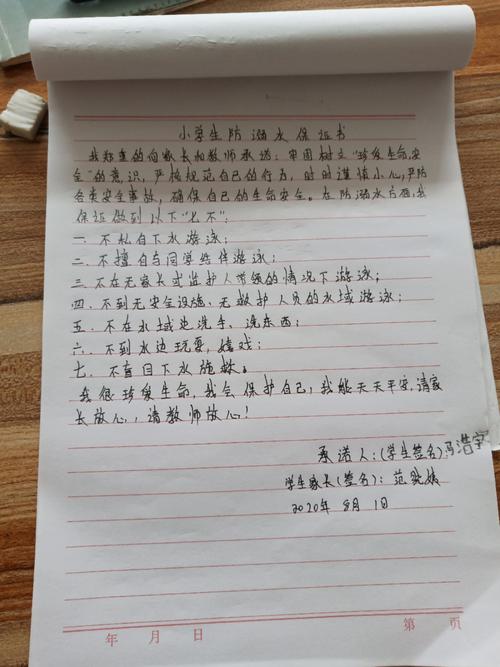 小学生防溺水保证书
我郑重的向家长和教师承诺：牢固树立“珍爱生命，安
全”的意识，严格规范自己的行为，时时谨慎小心，严防
各类安全事故，确保自己的生命安全。在防溺水方面，我
保证做到以下“七不”：
一. 不私自下水游泳；
二. 不擅自与同学结伴游泳；
三. 不在无家长或监护人带领的情况下游泳；
四. 不到无安全设施、无救护人员的水域游泳；
五. 不在水域边洗手、洗东西；
六. 不到水边玩耍，嬉戏；
七. 不盲目下水施救。
我很珍爱生命，我会保护自己；我能天天平安，请家
长放心，请教师放心！
承诺人：(学生签名)冯浩宇
学生家长(签名)：范
2020年 8月 1日
年 月 日
第 页